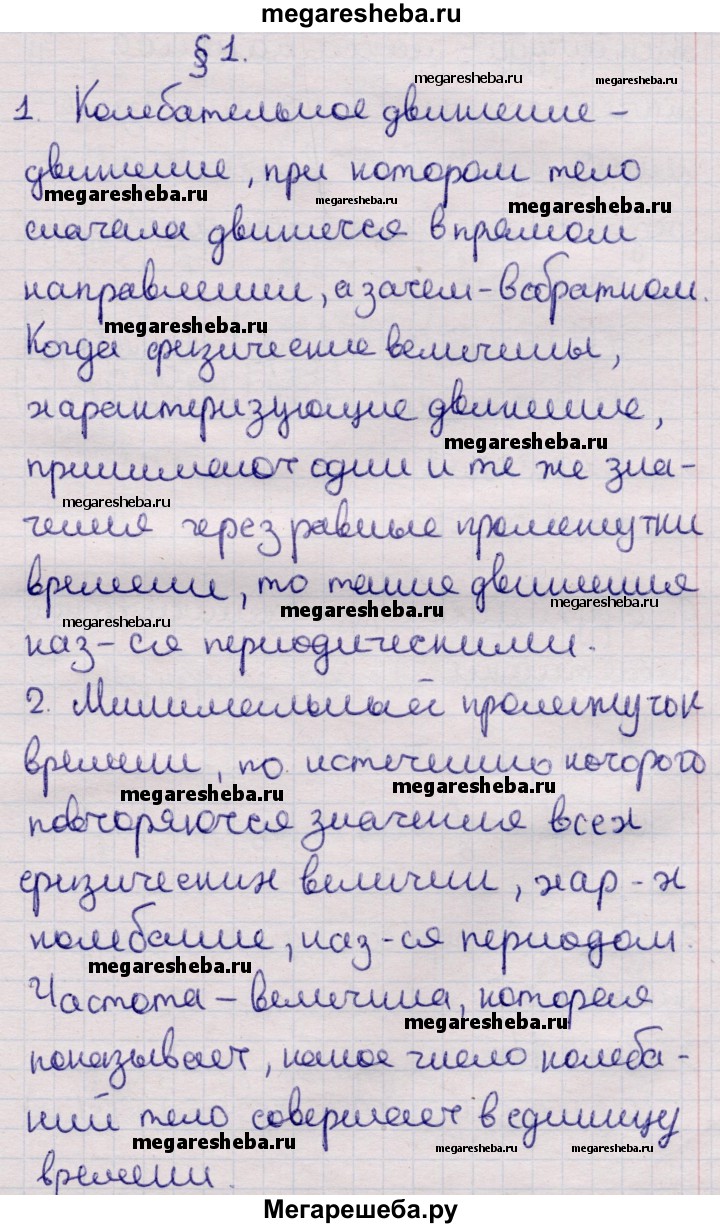 megaresheba.ru
§ 1.
megaresheba.ru
megaresheba.ru
1. Колебательное движение –
движение, при котором тело
megaresheba.ru
megaresheba.ru
megaresheba.ru
сначала движется в прямом
направлении, а затем – в обратном.
megaresheba.ru
Когда физические величины,
характеризующие движение,
megaresheba.ru
принимают одни и те же зна-
megaresheba.ru
чения через равные промежутки
времени, то такие движения
megaresheba.ru
megaresheba.ru
наз-ся периодическими.
2. Минимальный промежуток
времени, по истечению которого
megaresheba.ru
megaresheba.ru
повторяются значения всех
физических величин, хар-х
колебание, наз-ся периодом.
megaresheba.ru
Частота – величина, которая
megaresheba.ru
показывает, какое число колеба-
ний тело совершает в единицу
megaresheba.ru
megaresheba.ru
megaresheba.ru
времени.
Мегарешеба.ру